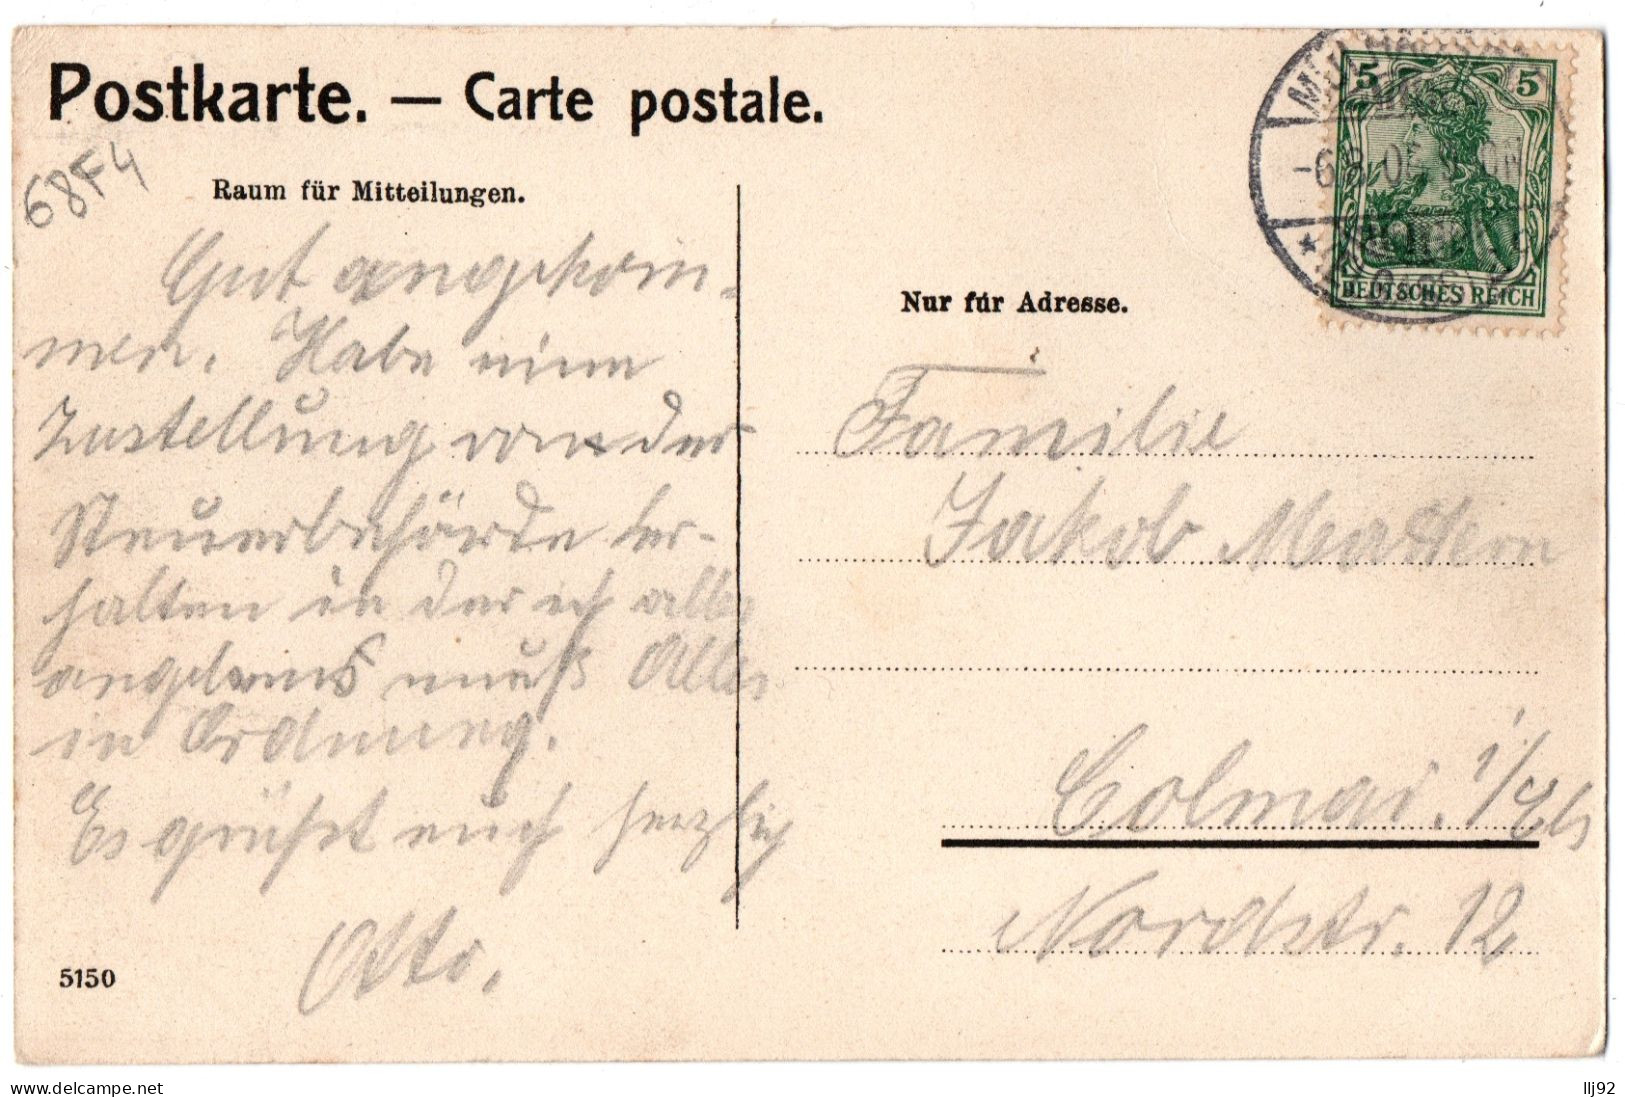 Postkarte. — Carte postale.
68F4
Raum für Mitteilungen.
Gut angekom-
men. Habe eine
Zustellung von der
Steuerbehörde er-
halten in der ich alles
angeben muß Alles
in Ordnung.
Es grüßt euch herzlich
Otto.
5150
5 5
DEUTSCHES REICH
Nur für Adresse.
Familie
Jakob Mattern
Colmar. i/Els
Nordstr. 12
www.delcampe.net
llj92